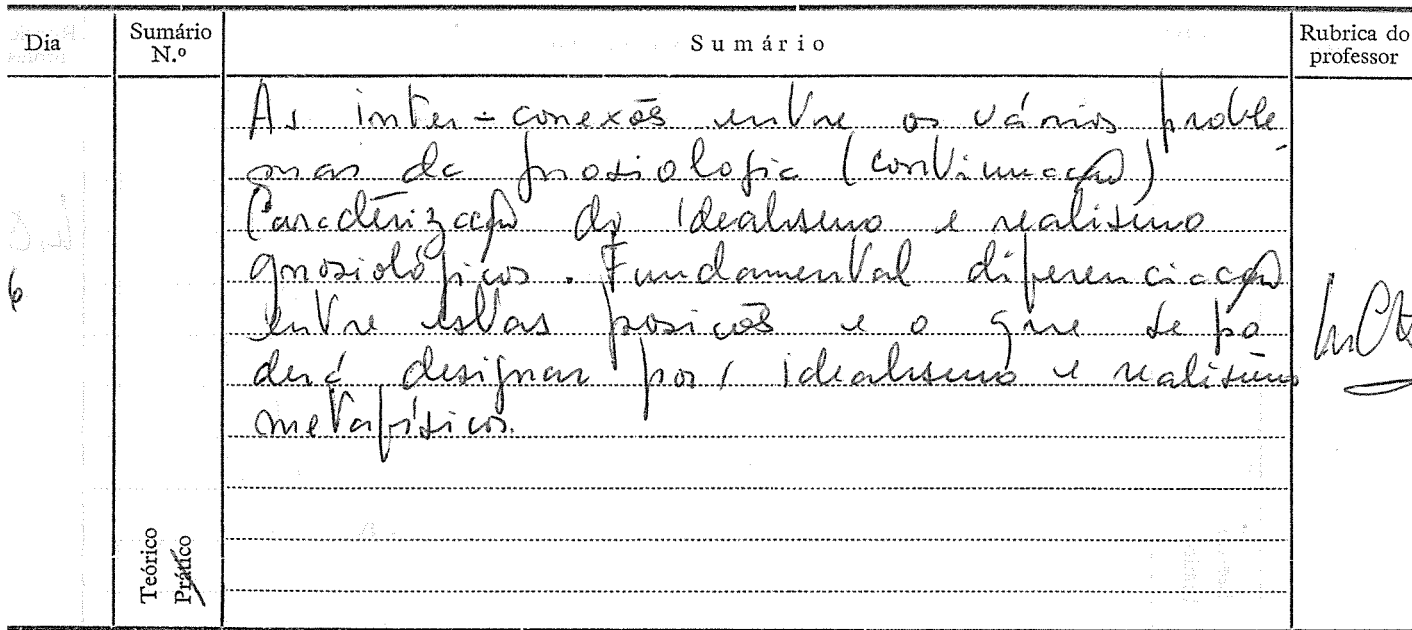 Dia
Sumário N.º
Sumário
Rubrica do professor
As inter-conexões entre os vários proble
mas da gnosiologia (continuação)
Caracterização do idealismo e realismo
gnosiológicos. Fundamental diferenciação
entre estas posições e o que se po
derá designar por, idealismo e realismo
metafísicos.
6
Teórico
Prático